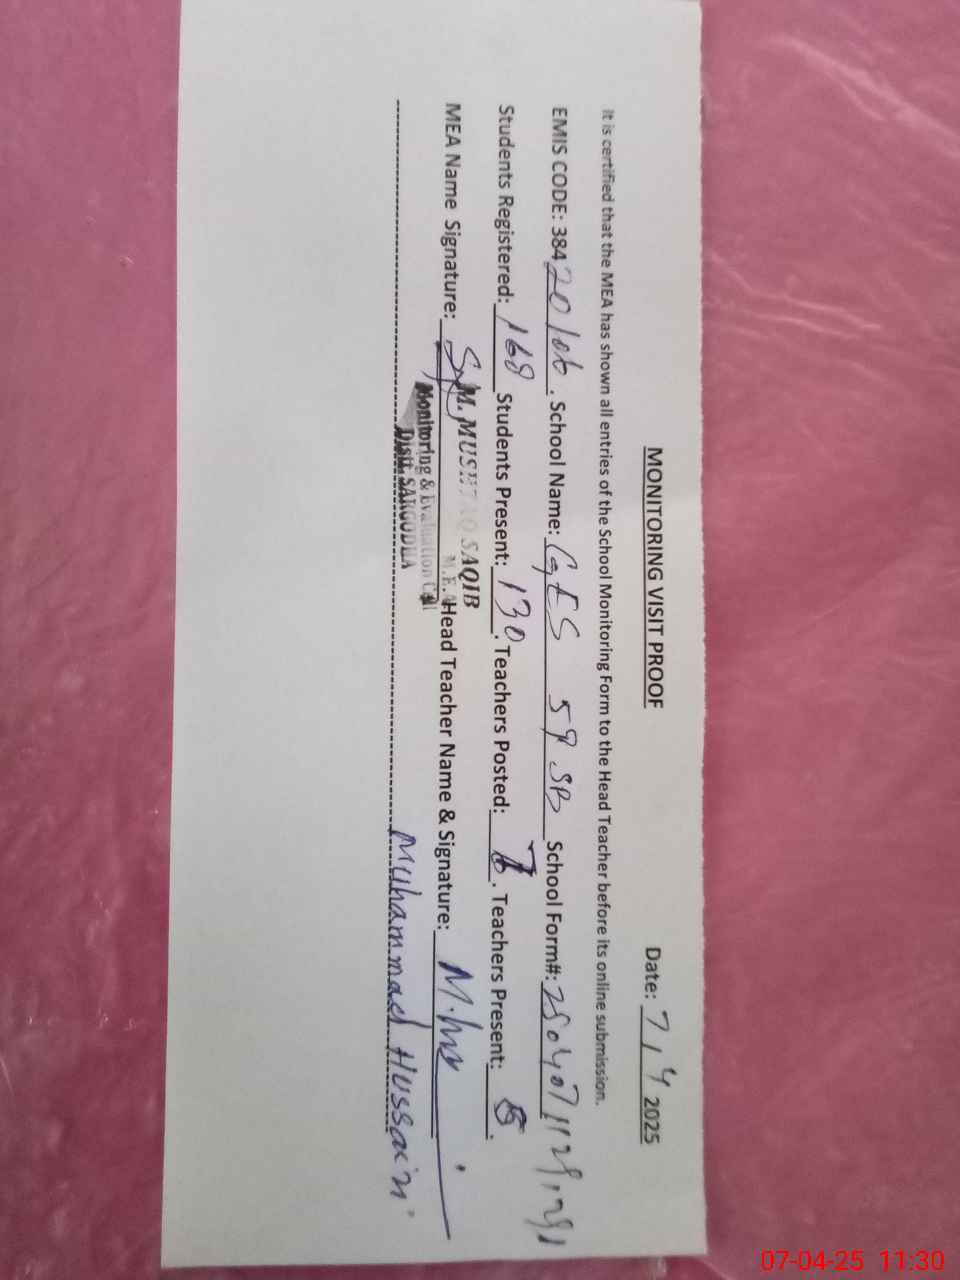 MONITORING VISIT PROOF
Date: 7/4 2025
It is certified that the MEA has shown all entries of the School Monitoring Form to the Head Teacher before its online submission.
EMIS CODE: 38420106. School Name: GES 59 SB School Form#:
Students Registered: 168 Students Present: 130. Teachers Posted: . Teachers Present: .
MEA Name Signature: M. MUSHTAQ SAQIB Head Teacher Name & Signature:
M.E.A
Monitoring & Evaluation Cell
Distt. SARGODHA
Muhammad Hussain.
07-04-25 11:30